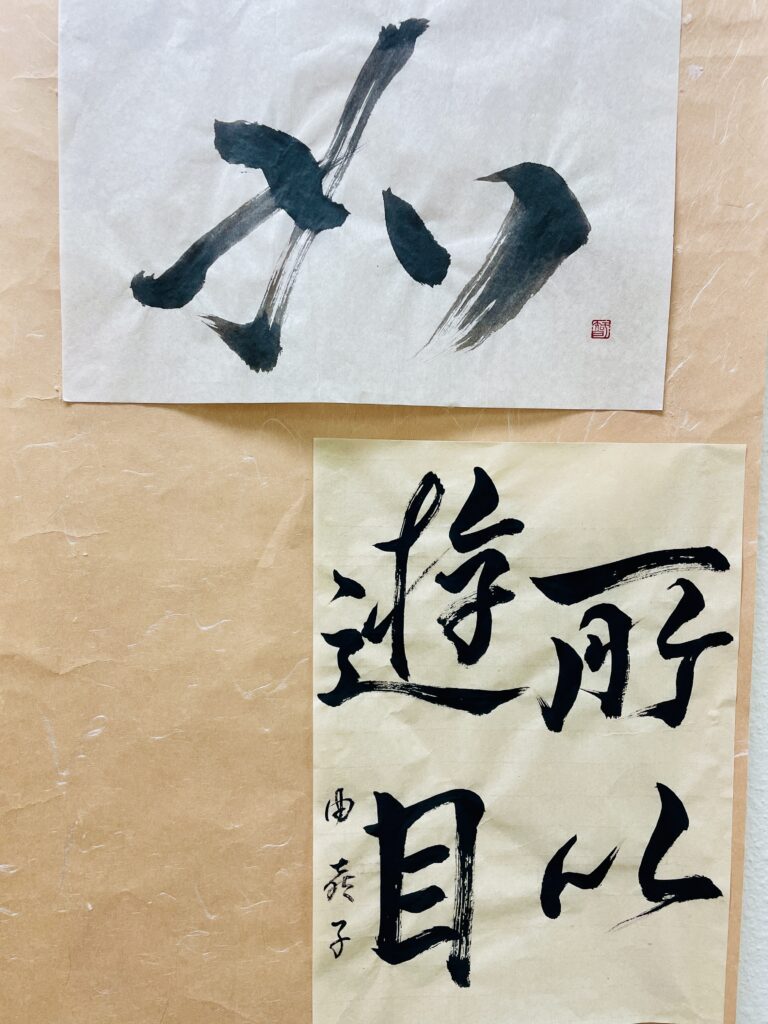 所以
遊目
由喜子